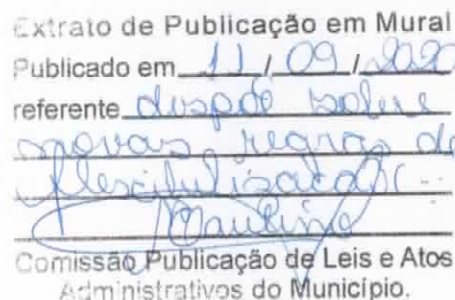 Extrato de Publicação em Mural
Publicado em 11 / 09 / 2020
referente dispõe sobre
novas regras de
flexibilização
Comissão Publicação de Leis e Atos
Administrativos do Município.